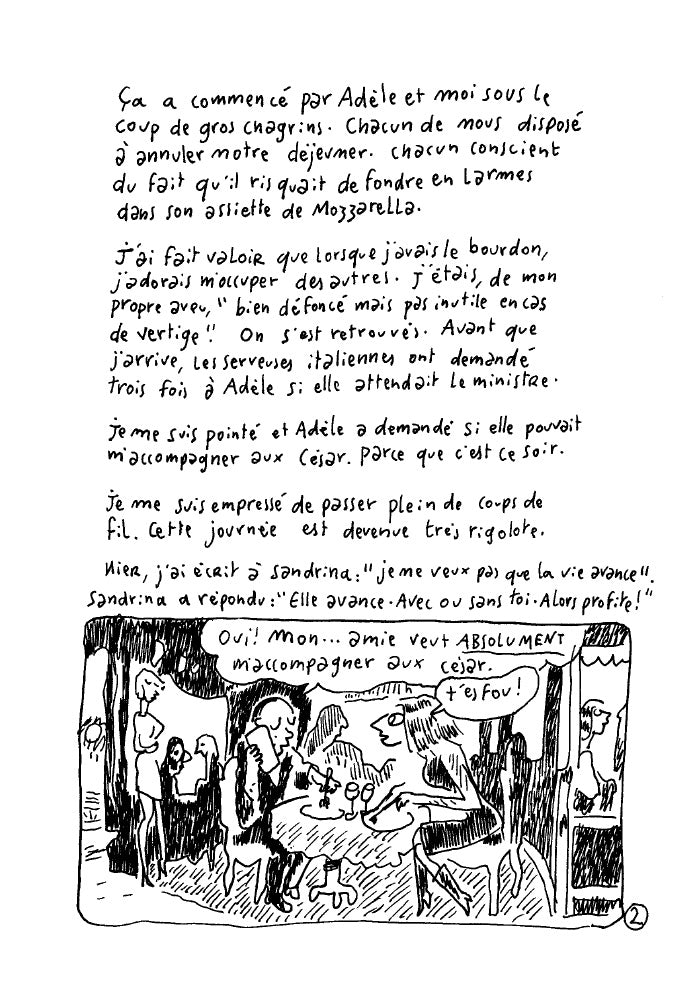 Ça a commencé par Adèle et moi sous le
coup de gros chagrins. Chacun de nous disposé
à annuler notre déjeuner. chacun conscient
du fait qu'il risquait de fondre en larmes
dans son assiette de Mozzarella.
J'ai fait valoir que lorsque j'avais le bourdon,
j'adorais m'occuper des autres. J'étais, de mon
propre aveu, "bien défoncé mais pas inutile en cas
de vertige". On s'est retrouvés. Avant que
j'arrive, les serveuses italiennes ont demandé
trois fois à Adèle si elle attendait le ministre.
je me suis pointé et Adèle a demandé si elle pouvait
m'accompagner aux César. parce que c'est ce soir.
Je me suis empressé de passer plein de coups de
fil. Cette journée est devenue très rigolote.
Hier, j'ai écrit à Sandrina: "je ne veux pas que la vie avance".
Sandrina a répondu: "Elle avance. Avec ou sans toi. Alors profite!"
Oui! Mon... amie veut ABSOLUMENT
m'accompagner aux césar.
t'es fou!
2